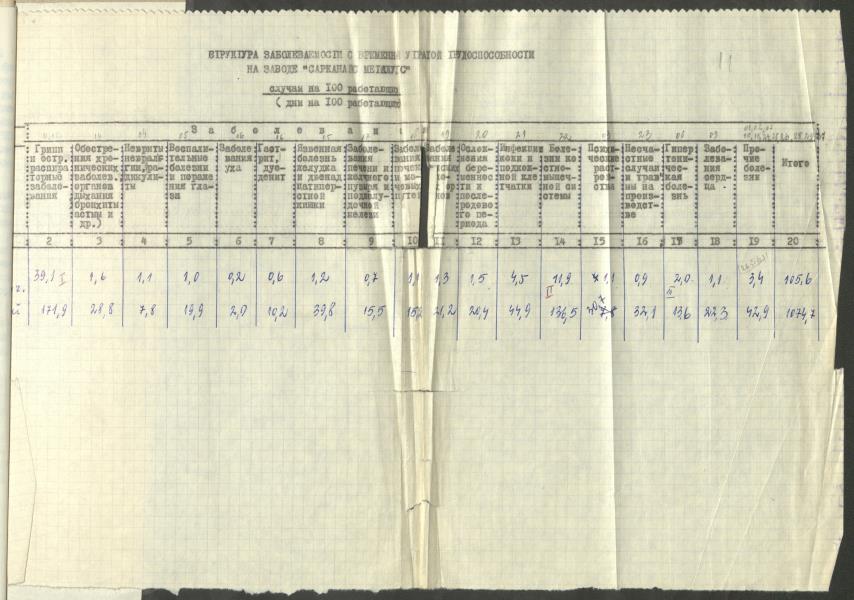 СТРУКТУРА ЗАБОЛЕВАЕМОСТИ С ВРЕМЕНН УТРАТОЙ ТРУДОСПОСОБНОСТИ
НА ЗАВОДЕ "САРКАНАЙС МЕТАЛУГС"
случаи на 100 работающ
( дни на 100 работающ
11
Заболевания
04 05 06 16 15 19 20 21 22 23 08 09
Грипп и остр. респира торные заболе- вания
Обостре- ния хро- нических заболев. органов дыхания бронхиты астмы и др.)
Невриты невралгии, ра- дикули- ты
Воспали- тельные болезни и пораже ния гла- за
Заболе вания уха
Гаст- рит, дуо- денит
Язвенная болезнь желудка и двенад. катипер- стной кишки
Заболе- вания печени и желчного пузыря и поджелу- дочной железы
Забол вания почек и мо- чевых путе
Ослож- нения бере- меннос ти и после- родово го пе- риода
Инфекции кожи и подкож- ной кле тчатки
Болез ни кос тно- мышеч- ной си стемы
Психи- ческие расст- рой- ства
Несчас- тные случаи и трав мы на произ- водст- ве
Гипер тони- чес- кая боле- знь
Забо- лева- ния серд- ца
Про- чие боле- зни
Итого
2 3 4 5 6 7 8 9 10 11 12 13 14 15 16 17 18 19 20
39,1 I 1,6 1,1 1,0 0,2 0,6 1,2 0,7 1,1 1,3 1,5 4,5 11,9 1,1 0,9 2,0 1,1 3,4 105,6
г.
II III
й 171,9 28,8 7,8 19,9 2,0 10,2 39,8 15,5 21,2 20,4 44,9 136,5 32,1 13,6 22,3 42,9 1074,7